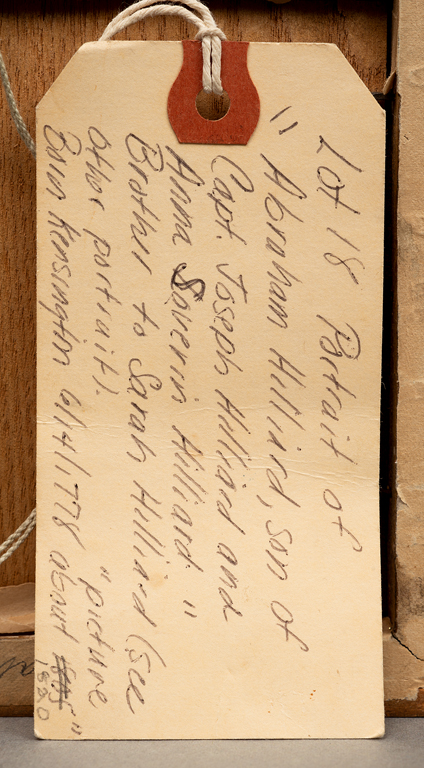 Lot 18 Portrait of
"Abraham Hilliard, son of
Capt. Joseph Hilliard and
Anna Soverin Hilliard."
Brother to Sarah Hilliard (see
other portrait). "picture
Born Kensington 6/4/1778 about "
1820